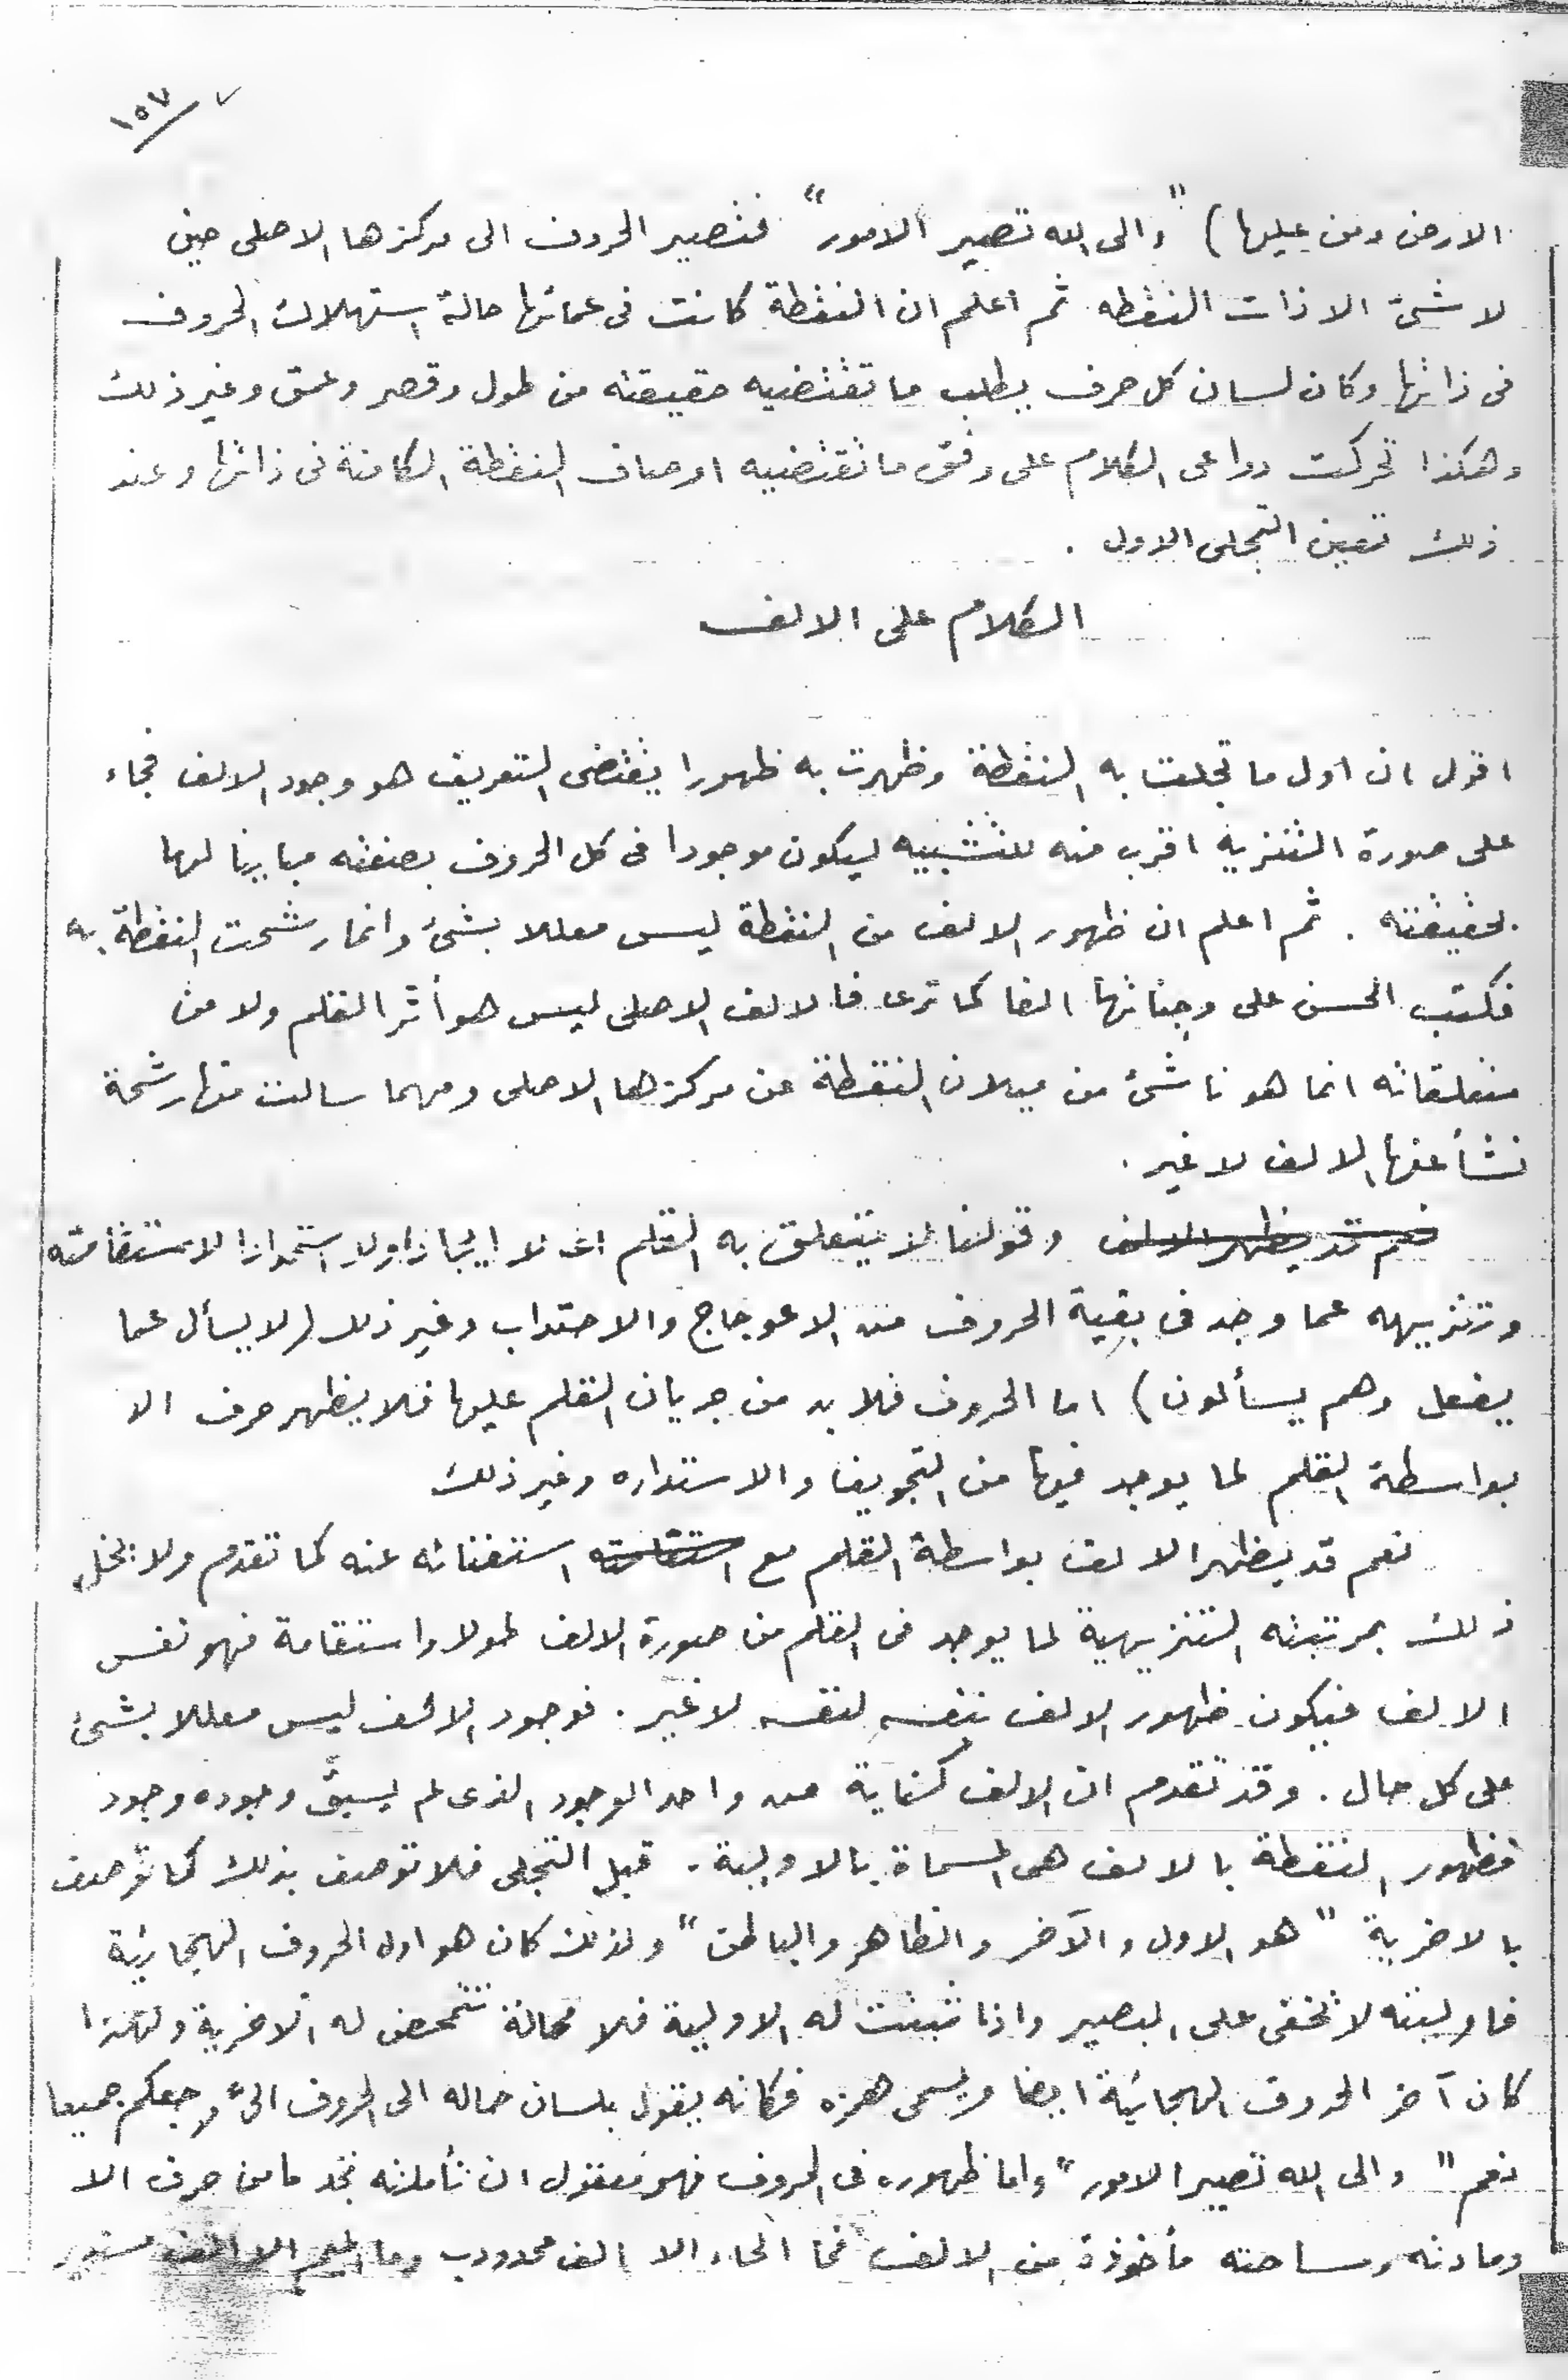 ١٥٧
الارض ومن عليها) "والى الله تصير الامور" فتصير الحروف الى مركزها الاصلى حين
لا شئ الا ذات النقطه ثم اعلم ان النقطة كانت فى عمائها حالة استهلاك الحروف
فى ذاتها وكان لسان كل حرف يطلب ما تقتضيه حقيقته من طول وقصر وعمق وغير ذلك
وهكذا تحركت دواعى الكلام على وفق ما تقتضيه اوصاف النقطة الكامنة فى ذاتها وعند
ذلك تعين التجلى الاول .
الكلام على الالف
اقول ان اول ما تجلت به النقطة وظهرت به ظهورا يقتضى التعريف هو وجود الالف فجاء
على صورة التنزيه اقرب منه للتشبيه ليكون موجودا فى كل الحروف بصفته مباينا لها
بحقيقته . ثم اعلم ان ظهور الالف من النقطة ليس معللا بشئ وانما رشحت النقطة به
فكتب الحسن على وجناتها الفا كما ترى فالالف الاصلى ليس هو أثر القلم ولا من
متعلقاته انما هو ناشئ من ميلان النقطة عن مركزها الاصلى ومهما سالت منها رشحة
نشأ عنها الالف لا غير .
نعم قد يظهر الالف وقولنا لا يتعلق به القلم اى لا ايجادا ولا استمدادا لاستقامته
وتنزيهه عما وجد فى بقية الحروف من الاعوجاج والاحتداب وغير ذلك (لا يسأل عما
يفعل وهم يسألون) اما الحروف فلا بد من جريان القلم عليها فلا يظهر حرف الا
بواسطة القلم لما يوجد فيها من التجويف والاستداره وغير ذلك
نعم قد يظهر الالف بواسطة القلم مع استقامته استغنائه عنه كما تقدم ولا يخل
ذلك بمرتبته التنزيهية لما يوجد فى القلم من صورة الالف طولا واستقامة فهو نفس
الالف فيكون ظهور الالف بنفسه لنفسه لا غير . فوجود الالف ليس معللا بشئ
على كل حال . وقد تقدم ان الالف كناية عن واحد الوجود الذى لم يسبق وجوده وجود
فظهور النقطة بالالف هى المسماة بالاولية . قبل التجلى فلا توصف بذلك كما توصف
بالاخرية "هو الاول والآخر والظاهر والباطن" ولذلك كان هو اول الحروف الهجائية
فاوليته لا تخفى على البصير واذا ثبتت له الاولية فلا محالة تتمحض له الاخرية ولهذا
كان آخر الحروف الهجائية ايضا ويسمى همزه فكانه يقول بلسان حاله الى الحروف الىّ مرجعكم جميعا
نعم "والى الله تصير الامور" واما ظهوره فى الحروف فهو معقول ان تأملته تجد ما من حرف الا
ومادته ومساحته مأخوذة من الالف فما الحاء الا الف محدودب وما الميم الا الف مستدير